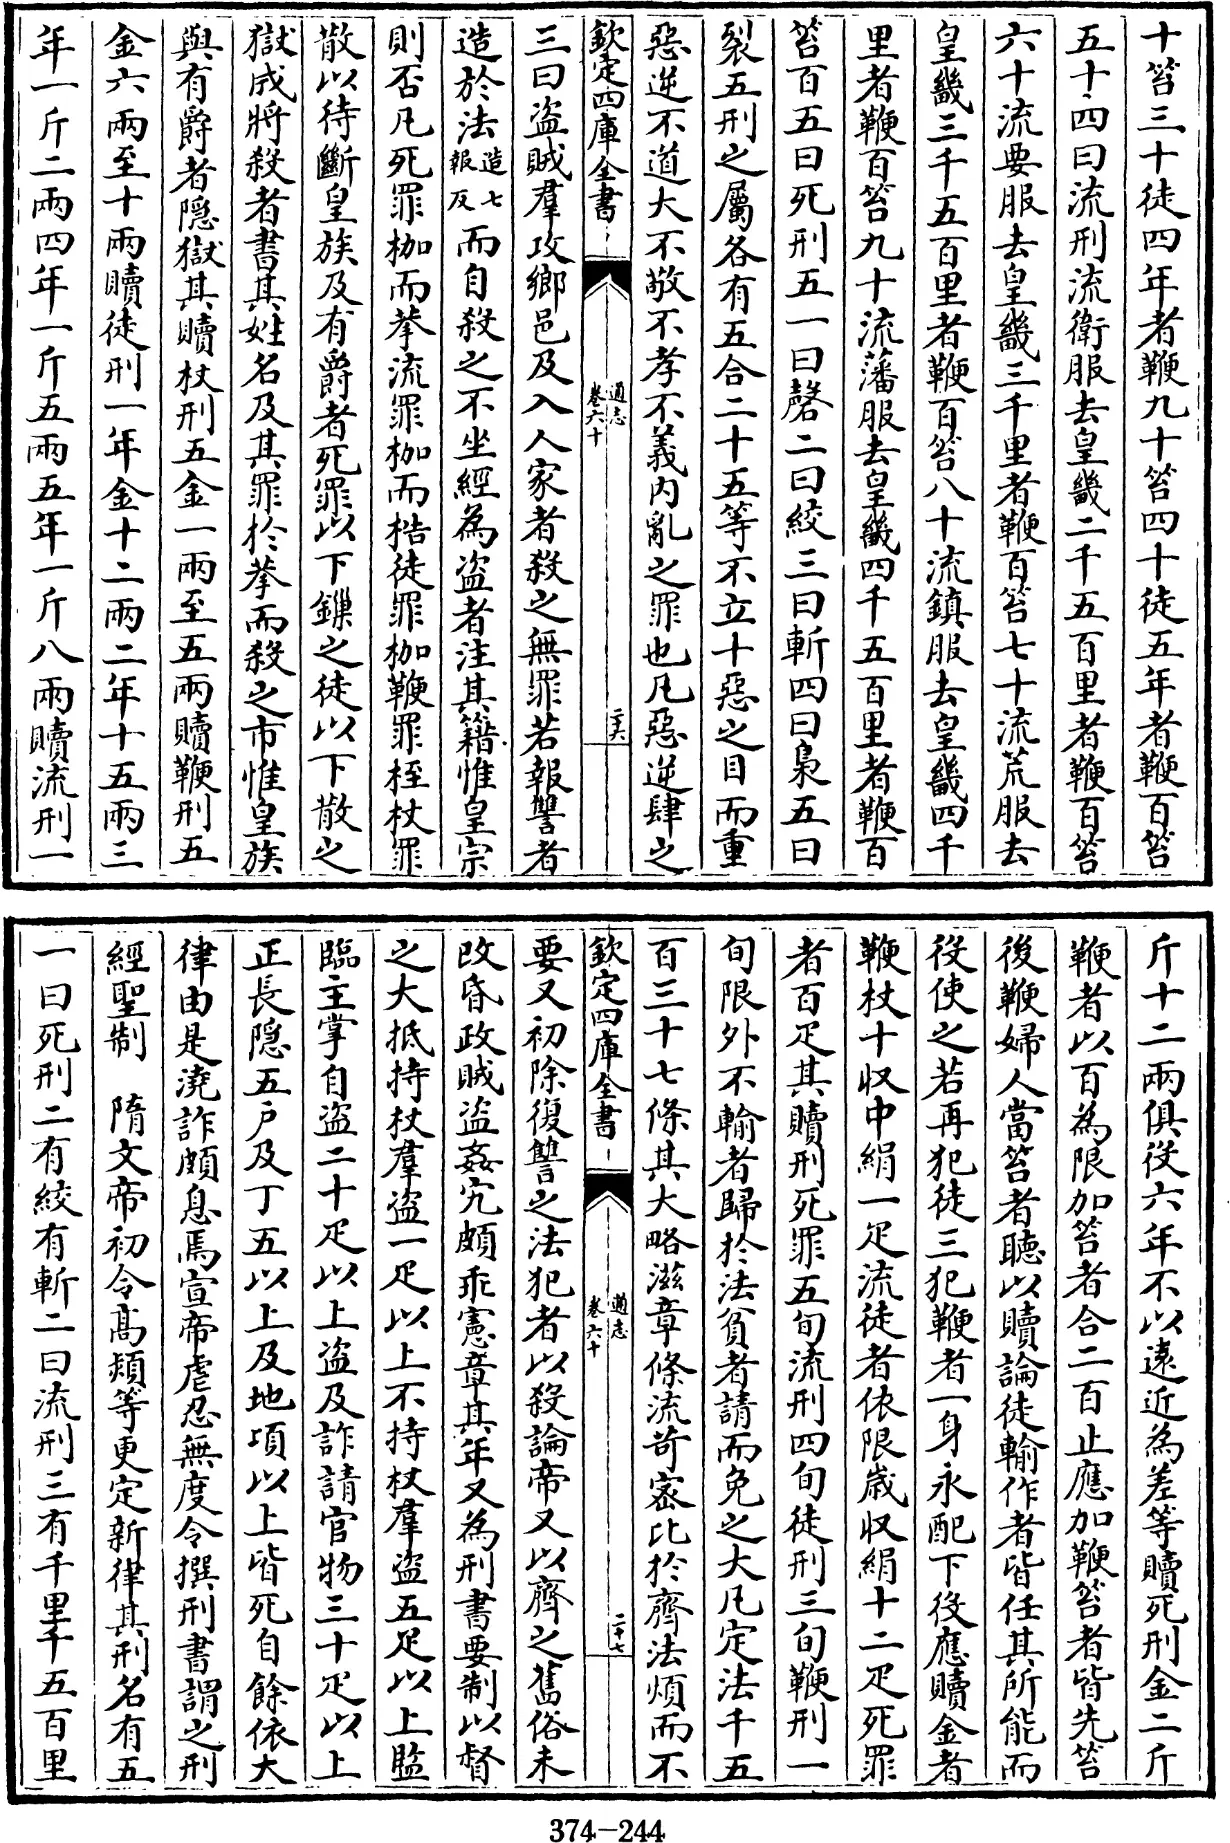 十笞三十徒四年者鞭九十笞四十徒五年者鞭百笞
五十四曰流刑流衛服去皇畿二千五百里者鞭百笞
六十流要服去皇畿三千里者鞭百笞七十流荒服去
皇畿三千五百里者鞭百笞八十流鎮服去皇畿四千
里者鞭百笞九十流藩服去皇畿四千五百里者鞭百
笞百五曰死刑五一曰磬二曰絞三曰斬四曰梟五曰
裂五刑之屬各有五合二十五等不立十惡之目而重
惡逆不道大不敬不孝不義内亂之罪也凡惡逆肆之
欽定四庫全書
通志
卷六十
二十六
三曰盗賊羣攻鄉邑及入人家者殺之無罪若報讐者
造於法造七報反而自殺之不坐經為盗者注其籍惟皇宗
則否凡死罪枷而拲流罪枷而梏徒罪枷鞭罪桎杖罪
散以待斷皇族及有爵者死罪以下鏁之徒以下散之
獄成將殺者書其姓名及其罪於拲而殺之市惟皇族
與有爵者隠獄其贖杖刑五金一兩至五兩贖鞭刑五
金六兩至十兩贖徒刑一年金十二兩二年十五兩三
年一斤二兩四年一斤五兩五年一斤八兩贖流刑一
斤十二兩俱役六年不以逺近為差等贖死刑金二斤
鞭者以百為限加笞者合二百止應加鞭笞者皆先笞
後鞭婦人當笞者聴以贖論徒輸作者皆任其所能而
役使之若再犯徒三犯鞭者一身永配下役應贖金者
鞭杖十収中絹一疋流徒者依限歲収絹十二疋死罪
者百疋其贖刑死罪五旬流刑四旬徒刑三旬鞭刑一
旬限外不輸者歸於法貧者請而免之大凡定法千五
百三十七條其大略滋章條流苛宻比於齊法煩而不
欽定四庫全書
通志
卷六十
二十七
要又初除復讐之法犯者以殺論帝又以齊之舊俗未
改昏政賊盗姦宄頗乖憲章其年又為刑書要制以督
之大抵持杖羣盗一疋以上不持杖羣盗五疋以上監
臨主掌自盗二十疋以上盗及詐請官物三十疋以上
正長隠五户及丁五以上及地頃以上皆死自餘依大
律由是澆詐頗息焉宣帝虐忍無度令撰刑書謂之刑
經聖制　隋文帝初令髙熲等更定新律其刑名有五
一曰死刑二有絞有斬二曰流刑三有千里千五百里
374-244